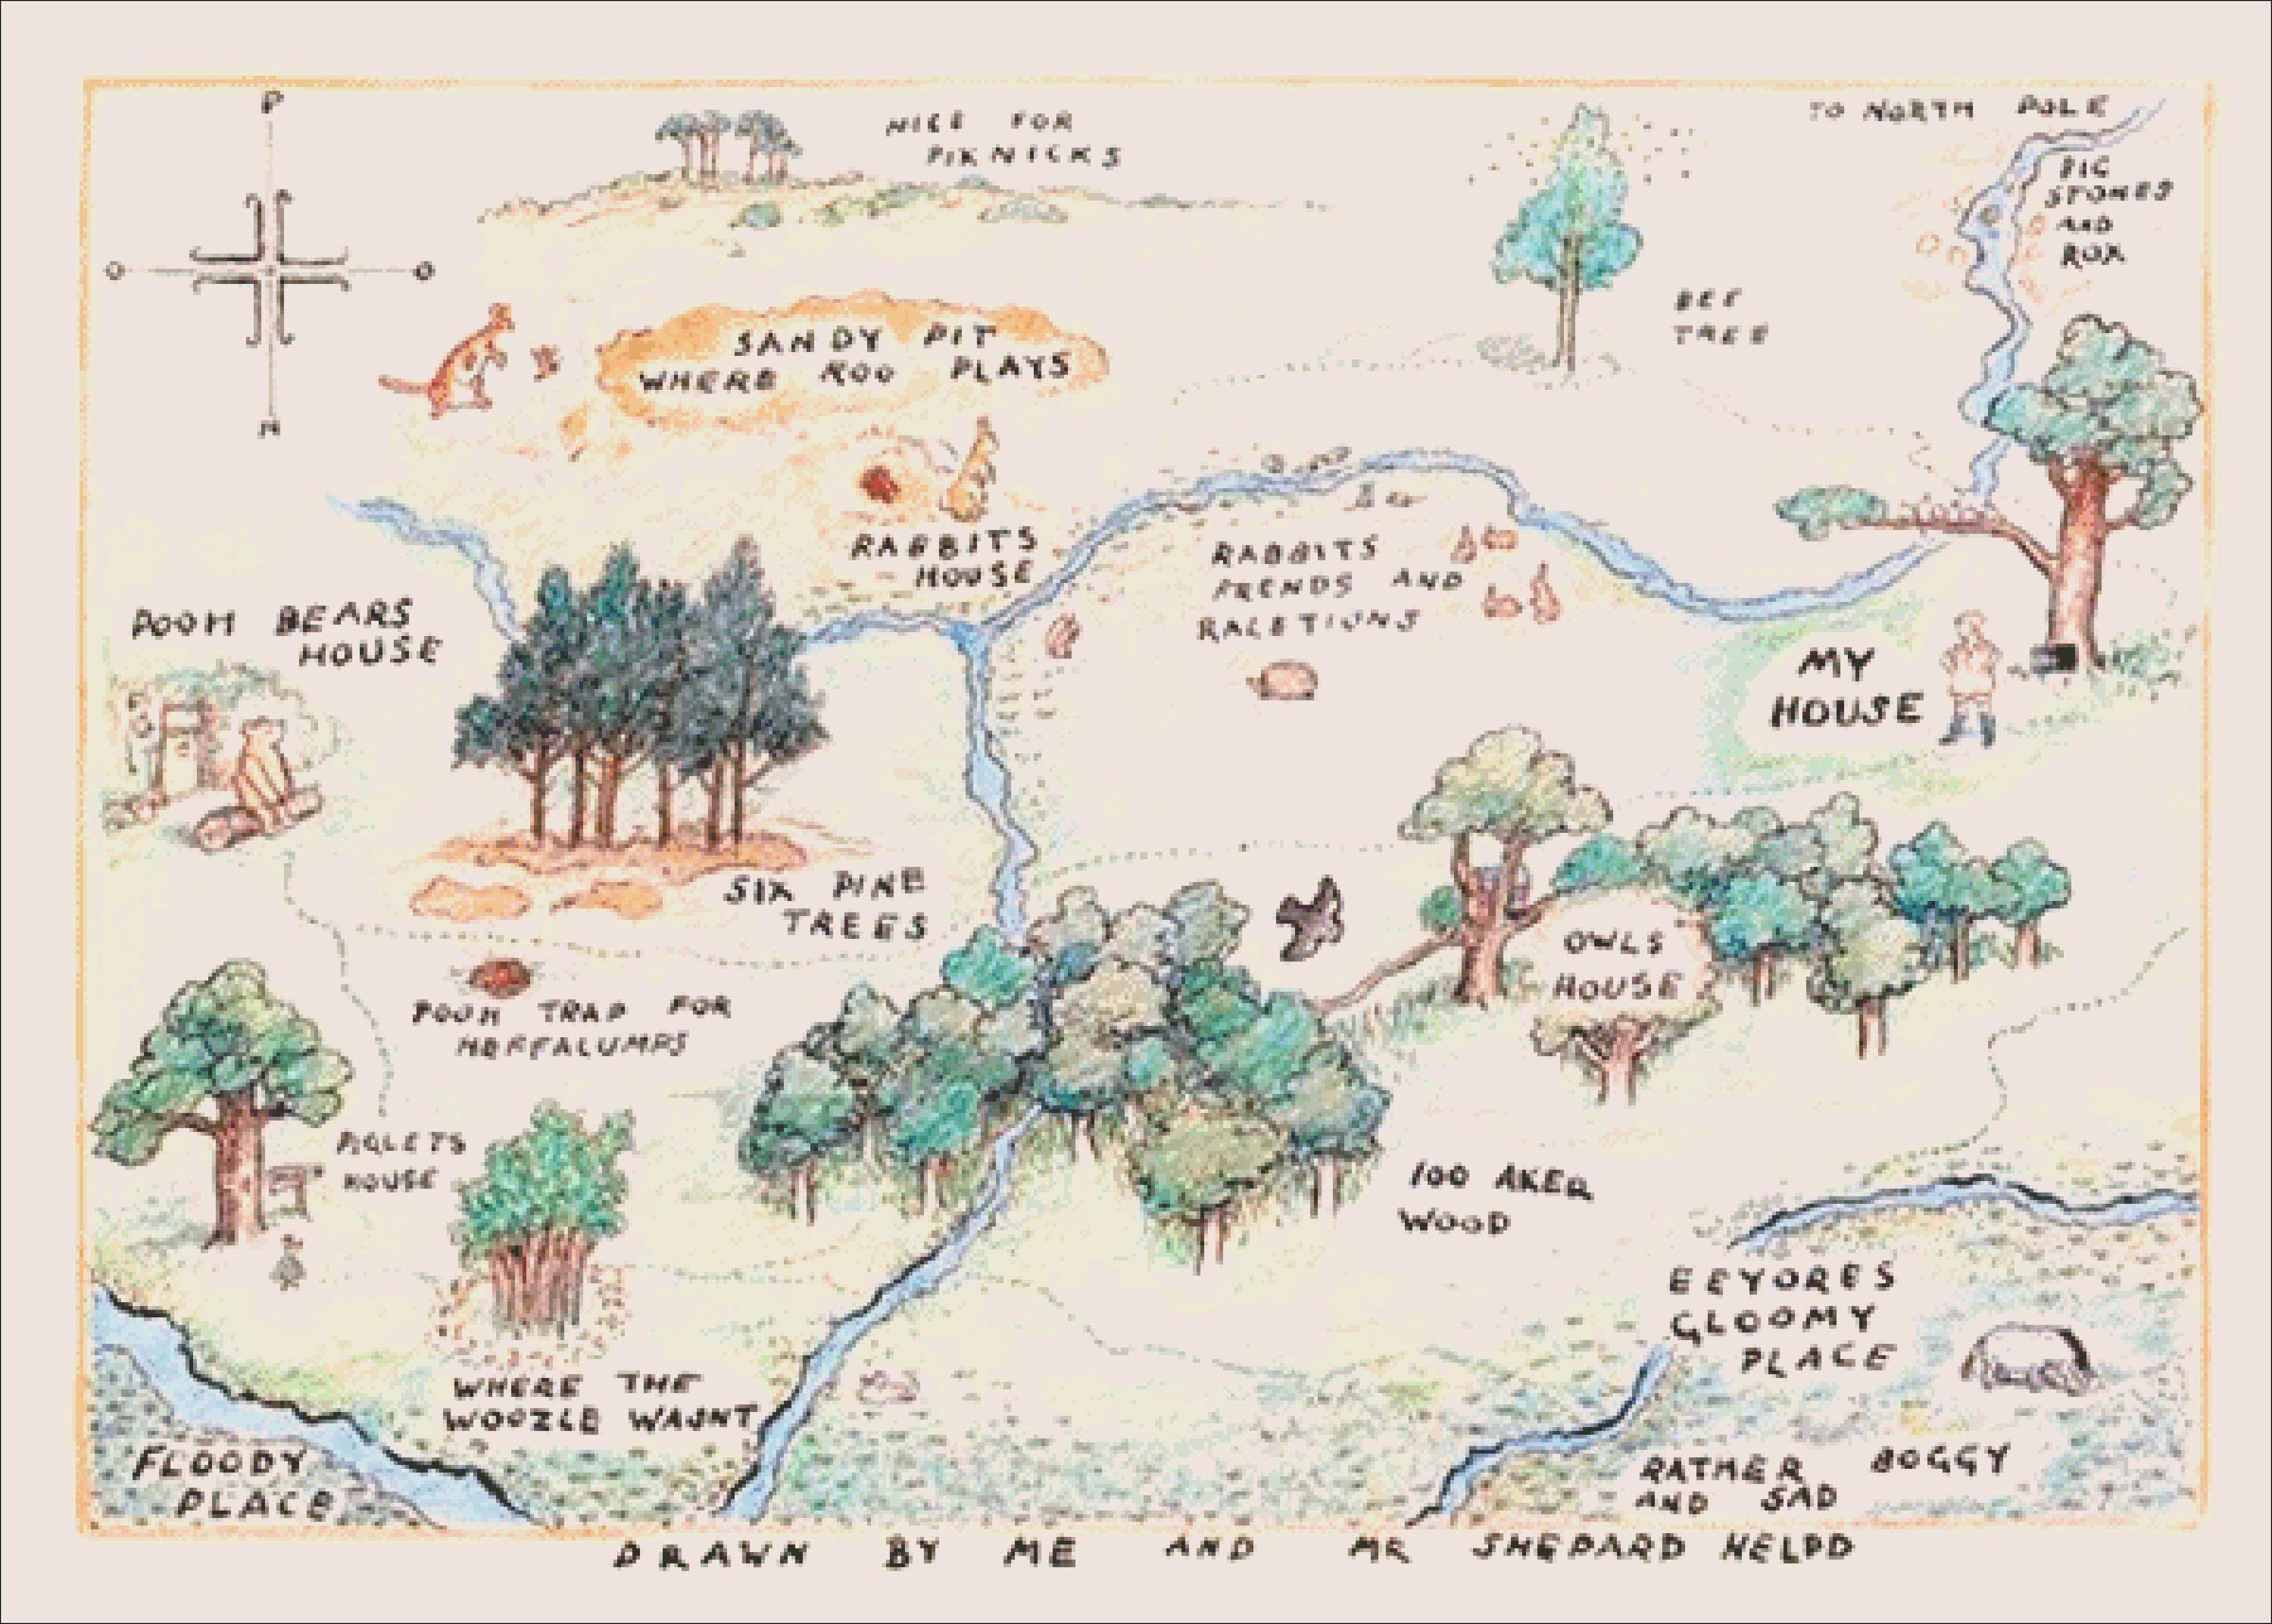 P
O O
H
NICE FOR
PIKNICKS
TO NORTH POLE
BIG
STONES
AND
ROX
BEE
TREE
SANDY PIT
WHERE ROO PLAYS
RABBITS
HOUSE
RABBITS
FRENDS AND
RALETIONS
POOH BEARS
HOUSE
MY
HOUSE
SIX PINE
TREES
OWLS
HOUSE
POOH TRAP FOR
HEFFALUMPS
PIGLETS
HOUSE
100 AKER
WOOD
EEYORES
GLOOMY
PLACE
WHERE THE
WOOZLE WASNT
FLOODY
PLACE
RATHER BOGGY
AND SAD
DRAWN BY ME AND MR SHEPARD HELPD